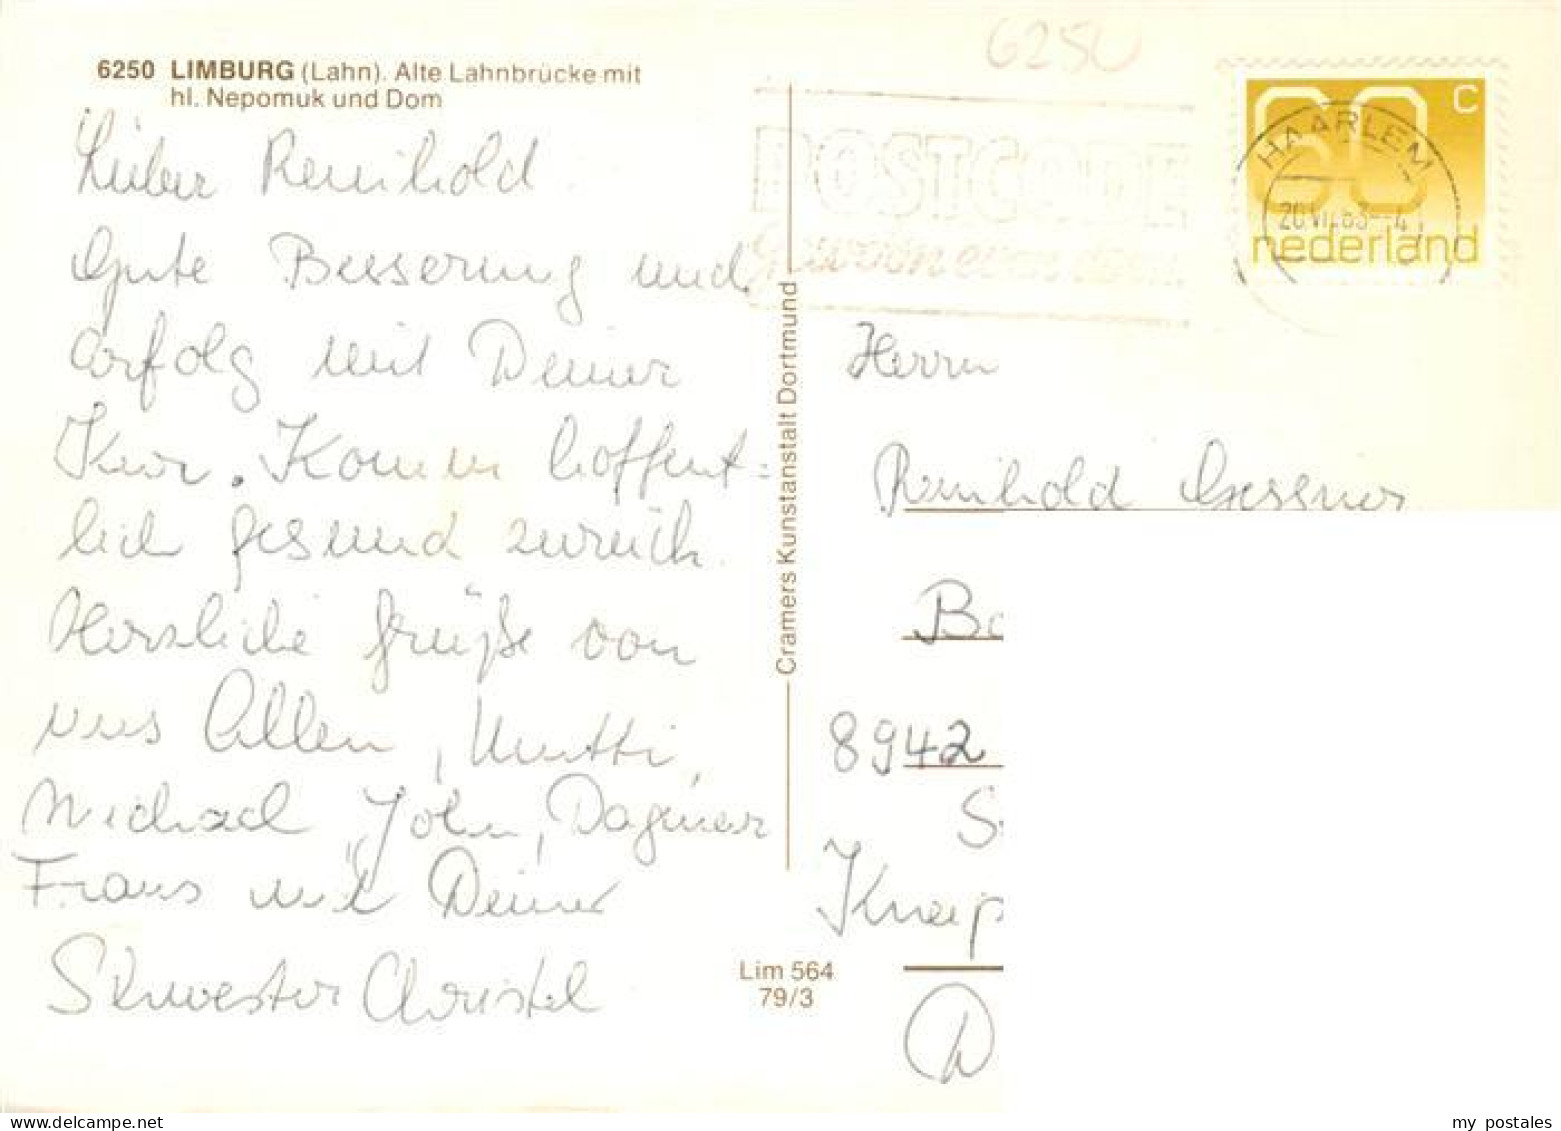 6250 LIMBURG (Lahn). Alte Lahnbrücke mit
hl. Nepomuk und Dom
Lieber Reinhold
Gute Besserung und
Erfolg mit Deiner
Kur. Komm hoffent=
lich gesund zurück.
Herzliche Grüße von
uns Allen, Mutti,
Michael, John, Dagmar
Frans mit Deiner
Schwester Christel
Cramers Kunstanstalt Dortmund
Lim 564
79/3
6250
POSTCODE
gewoon even doen
60 C
nederland
HAARLEM
Herrn
Reinhold Gessner
Ba
8942
Kneip
D
my postales